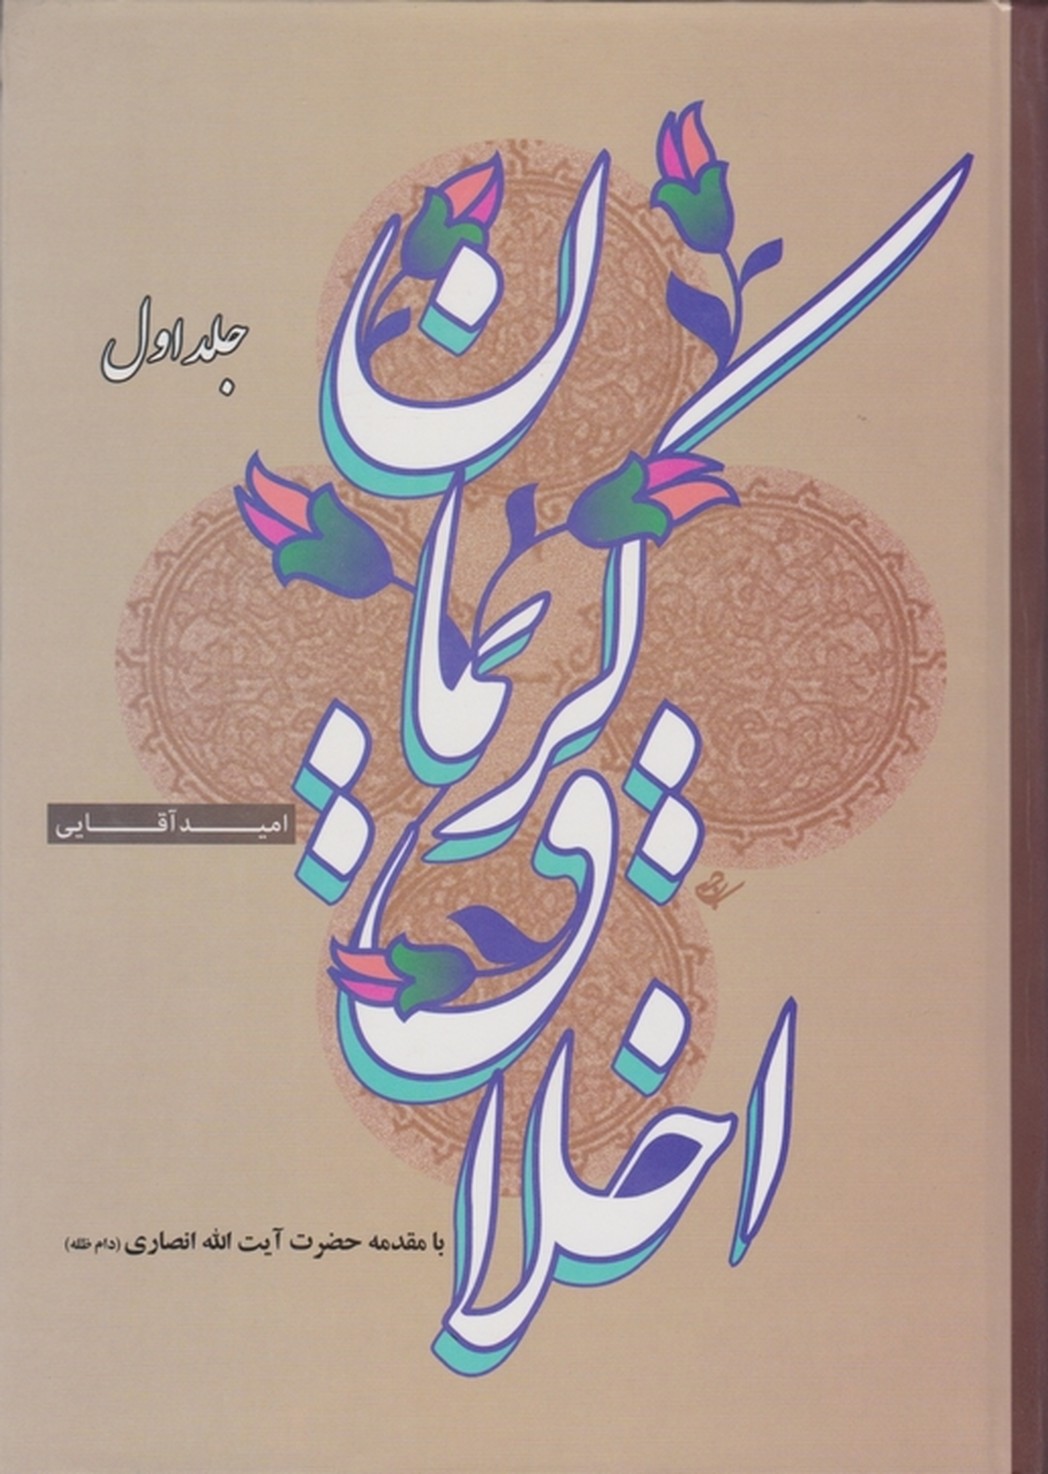 اخلاق کریمان
جلد اول
امید آقایی
با مقدمه حضرت آیت الله انصاری (دام ظله)